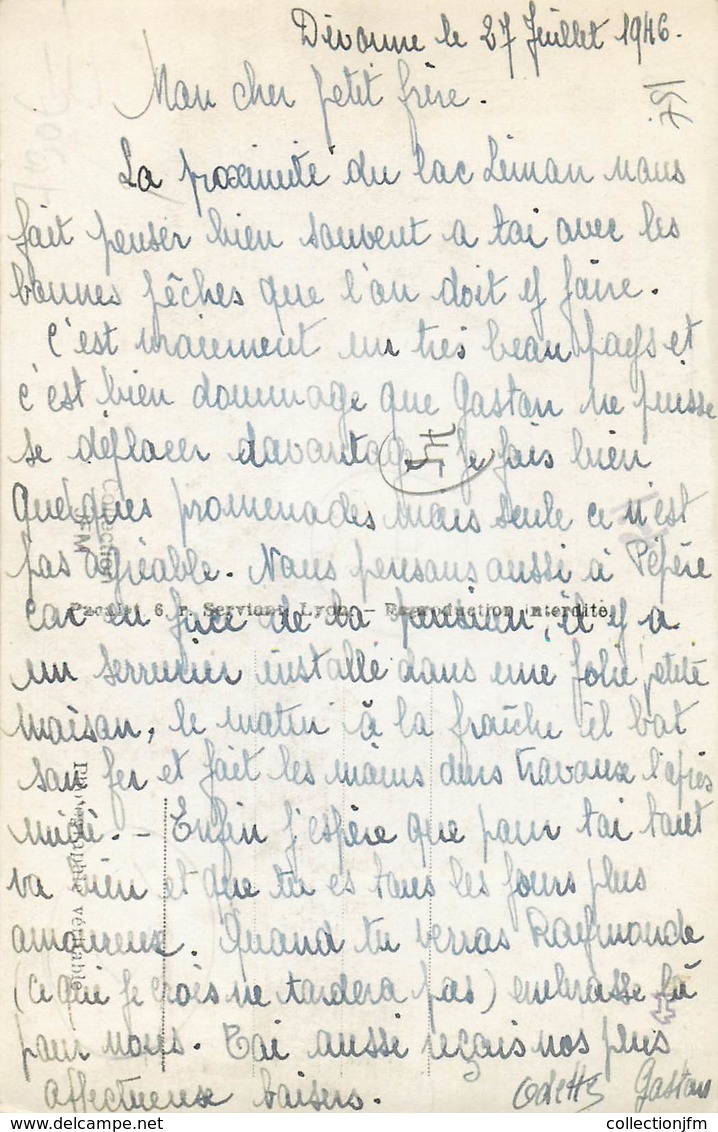 Divonne le 27 Juillet 1946.
Mon cher petit frère.
La proximité du lac Léman nous
fait penser bien souvent a toi avec les
bonnes pêches que l'on doit y faire.
C'est vraiement un très beau pays et
c'est bien dommage que Gaston ne puisse
se déplacer davantage. Je fais bien
quelques promenades mais seule ce n'est
pas agréable. Nous pensons aussi à Pépère
car en face de la pension, il y a
un serrurier installé dans une jolie petite
maison, le matin à la fraîche il bat
son fer et fait les moins durs travaux l'après
midi. - Enfin j'espère que pour toi tout
va bien et que tu es tous les jours plus
amoureux. Quand tu verras Raymonde
(ce qui je crois ne tardera pas) embrasse là
pour nous. Toi aussi reçois nos plus
affectueux baisers. Odette Gaston
6, r. Servient, Lyon. - Reproduction interdite.
Collection
véritable
collectionjfm